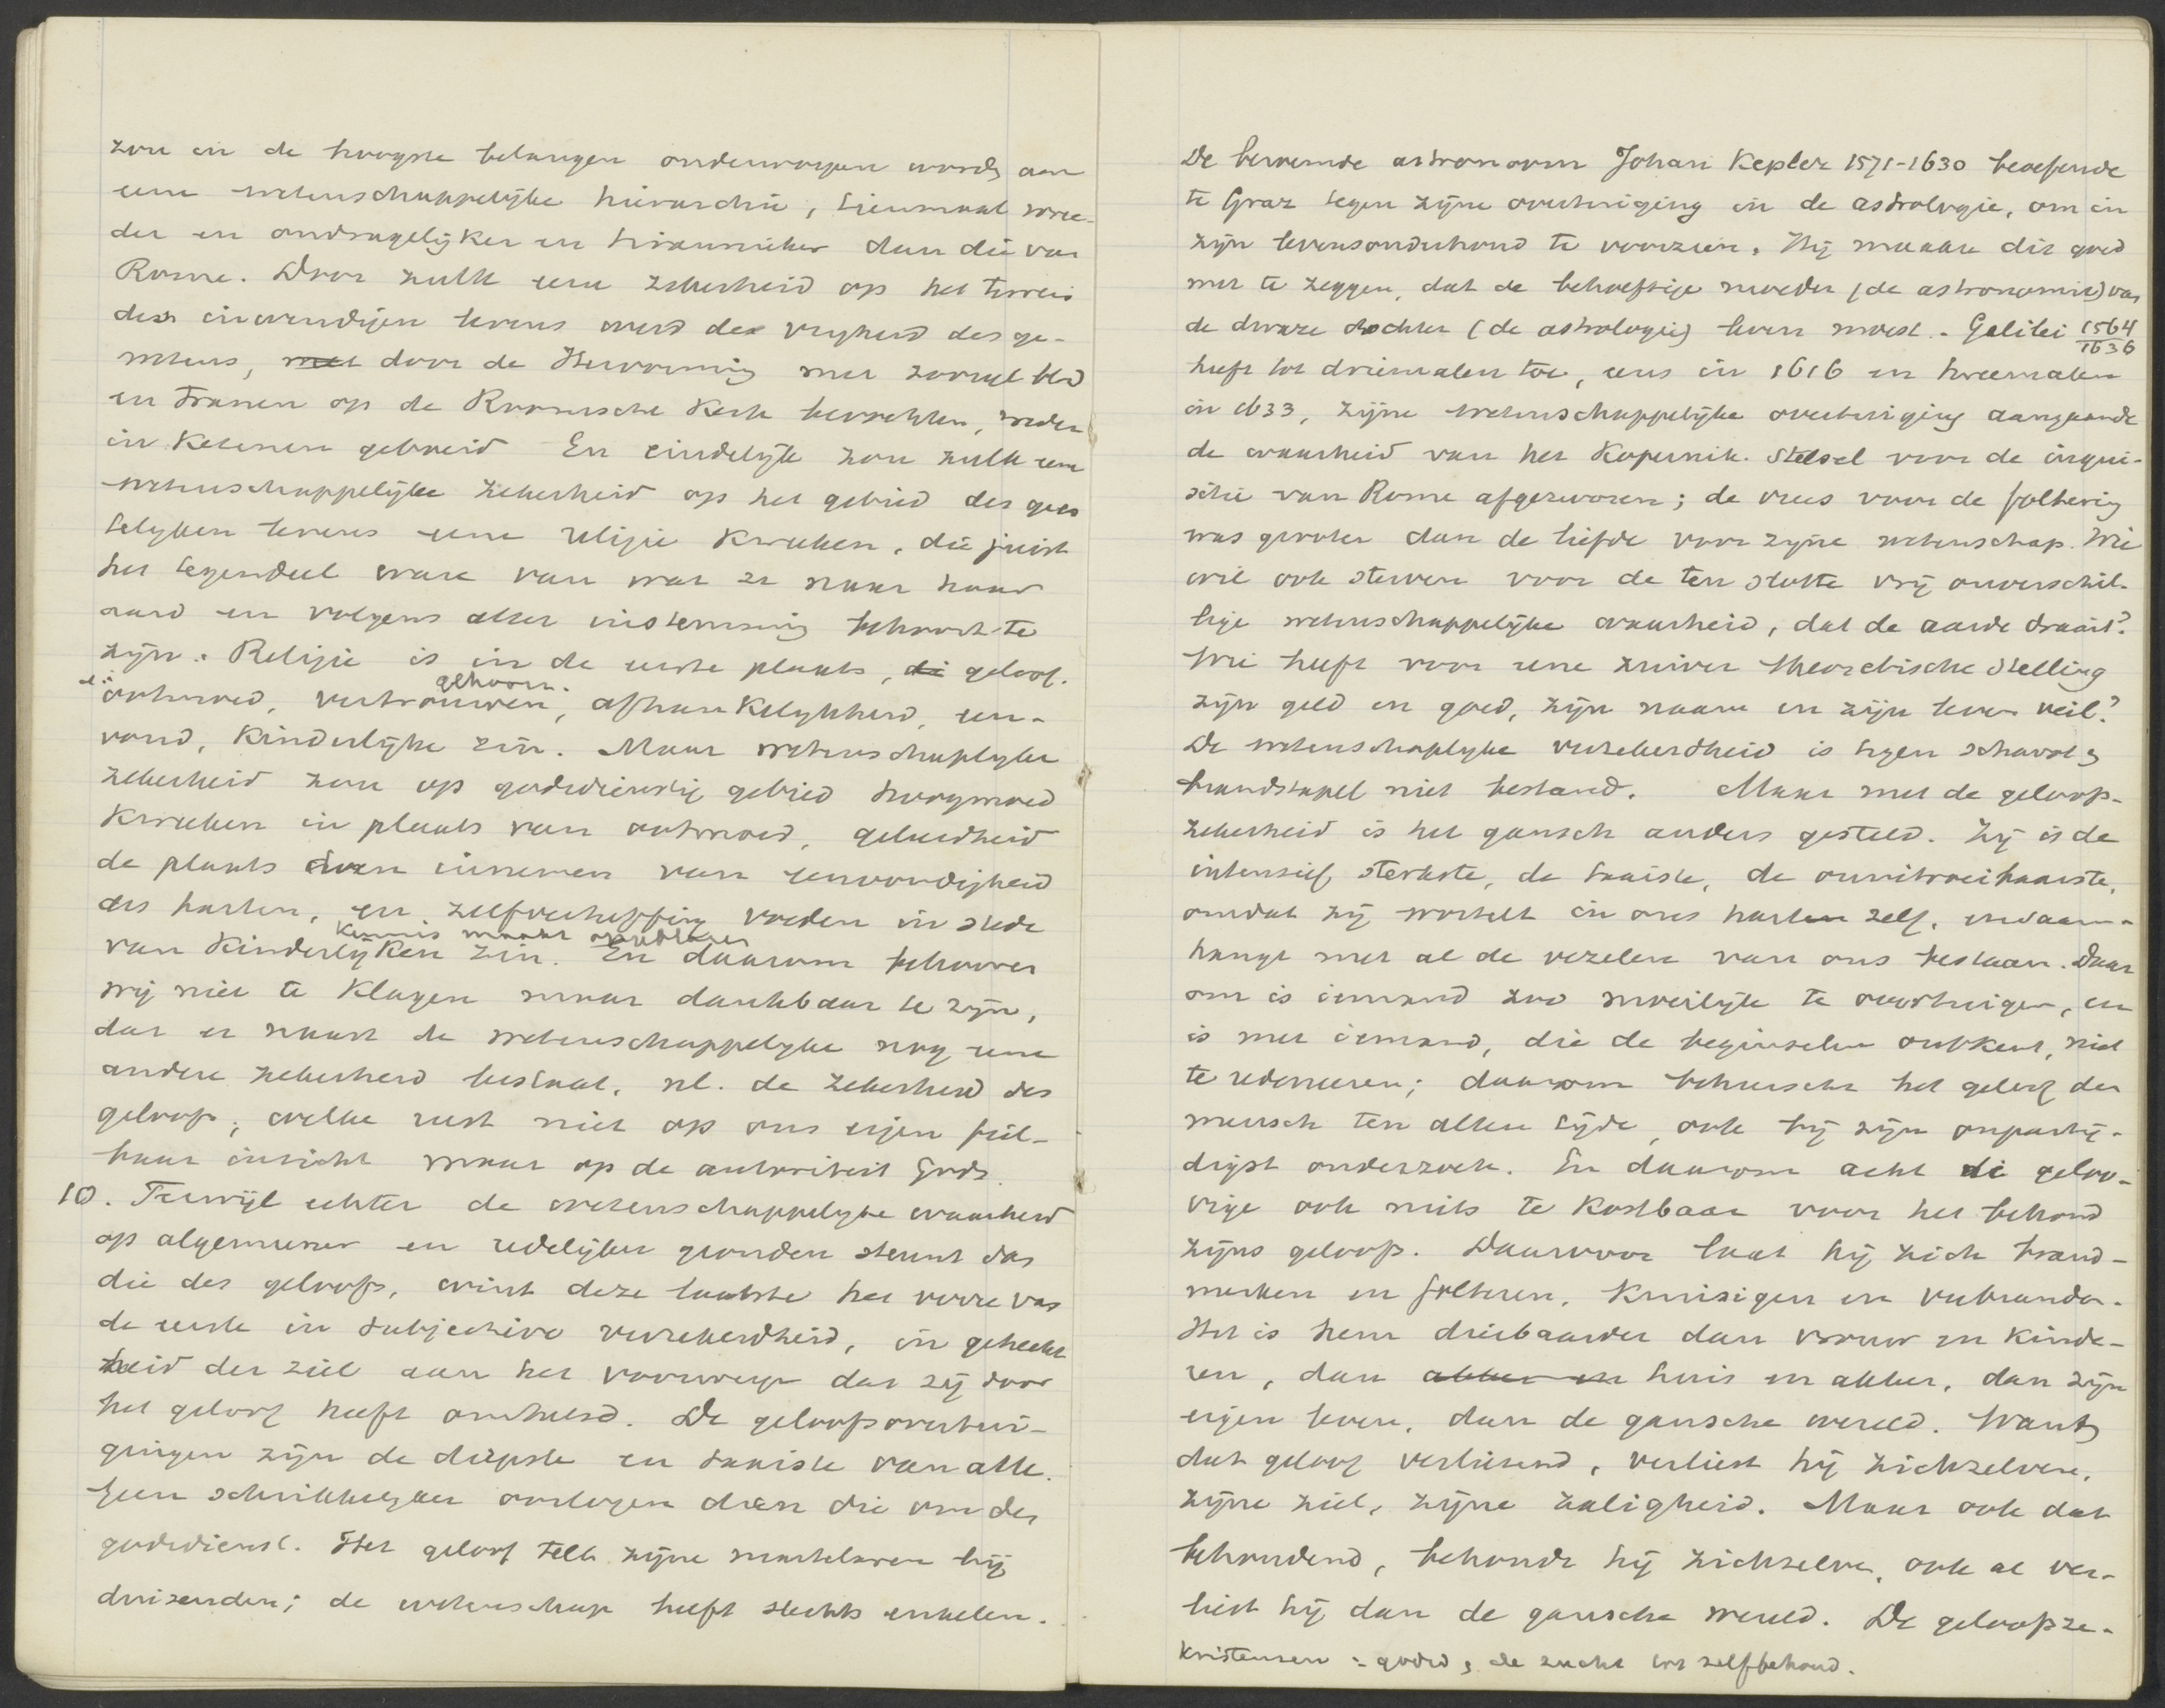 zou in de hoogste belangen onderworpen words aan
eene wetenschappelijke hierarchie, tienmaal wree-
der en ondragelijker en tirannieker dan die van
Rome. Door zulk eene zekerheid op het terrein
des inwendigen levens werd de vrijheid des ge-
wetens, met door de Hervorming met zooveel bld
en tranen op de Roomsche Kerk bevochten, weder
in ketenen geboeid En eindelijk zou zulk eene
wetenschappelijke zekerheid op het gebied des gees
telijken levens eene religie kweken, die juist
het tegendeel ware van wat ze naar haar
aard en volgens aller instemming behoort te
zijn. Religie is in de eerste plaats, di geloof.
gehoorz.
ootmoed, vertrouwen, afhankelijkheid, een-
voud, Kinderlijke zin. Maar wetenschaplyke
zekerheid zou op godsdienstig gebied hoogmoed
kweken in plaats van ootmoed, geleerdheid
de plaats doen innemen van eenvoudigheid
des harten, en zelfverheffing voeden in stede
kennis maakt opgeblazen
van Kinderlijken zin. En daarom behoeven
wij niet te klagen maar dankbaar te zijn,
dat er naast de wetenschappelijke nog eene
andere zekerheid bestaat, nl. de zekerheid des
geloofs, welke rust niet op ons eigen feil-
baar inzicht maar op de autoriteit Gods.
10. Terwijl echter de wetenschappelijke waarheid
op algemeener en redelijker gronden steunt dan
die des geloofs, wint deze laatste het verre van
de eerste in subjectieve verzekerdheid, in gehecht
heid der ziel aan het voorwerp dat zij door
het geloof heeft omhelsd. De geloofsovertui-
gingen zijn de diepste en taaiste van alle.
Geen schrikkelijker oorlogen dan die om den
godsdienst. Het geloof telt zijne martelaren bij
duizenden; de wetenschap heeft slechts enkelen.
De beroemde astronoom Johan Kepler 1571-1630 beoefende
te Graz tegen zijne overtuiging in de astrologie, om in
zijn levensonderhoud te voorzien. Hij maakte dit goed
met te zeggen, dat de behoeftige moeder (de astronomie) van
de dwaze dochter (de astrologie) leven moest. Galilei 1564
1636
heeft tot driemalen toe, eens in 1616 en tweemalen
in 1633, zijne wetenschappelijke overtuiging aangaande
de waarheid van het Kopernik. Stelsel voor de inqui-
sitie van Rome afgezworen; de vrees voor de foltering
was grooter dan de liefde voor zijne wetenschap. Wie
wil ook sterven voor de ten slotte vrij onverschil-
lige wetenschappelijke waarheid, dat de aarde draait?
Wie heeft voor eene zuiver theoretische Stelling
zijn geld en goed, zijn naam en zijn leven veil?
De wetenschaplyke verzekerdheid is tegen schavot en
brandstapel niet bestand. Maar met de geloofs-
zekerheid is het gansch anders gesteld. Zij is de
intensief sterkste, de taaiste, de onuitroeibaarste,
omdat zij wortelt in ons harten zelf, en saam-
hangt met al de vezelen van ons bestaan. Daar
om is iemand zoo moeilijk te overtuigen, en
is met iemand, die de beginselen ontkent, niet
te redeneeren; daarom beheerscht het geloof den
mensch ten allen tijde, ook bij zijn onpartij-
digst onderzoek. En daarom acht de geloo-
vige ook niets te kostbaar voor het behoud
zijns geloofs. Daarvoor laat hij zich brand-
merken en folteren, kruisigen en verbranden.
Het is hem dierbaarder dan vrouw en kinde-
ren, dan akker en huis en akker, dan zijn
eigen leven, dan de gansche wereld. Want
dat geloof verliezend, verliest hij zichzelven,
zijne ziel, zijne zaligheid. Maar ook dat
behoudend, behoudt hij zichzelven, ook al ver-
liest hij dan de gansche wereld. De geloofsze-
Kristensen = godsd, de zucht tot zelfbehoud.